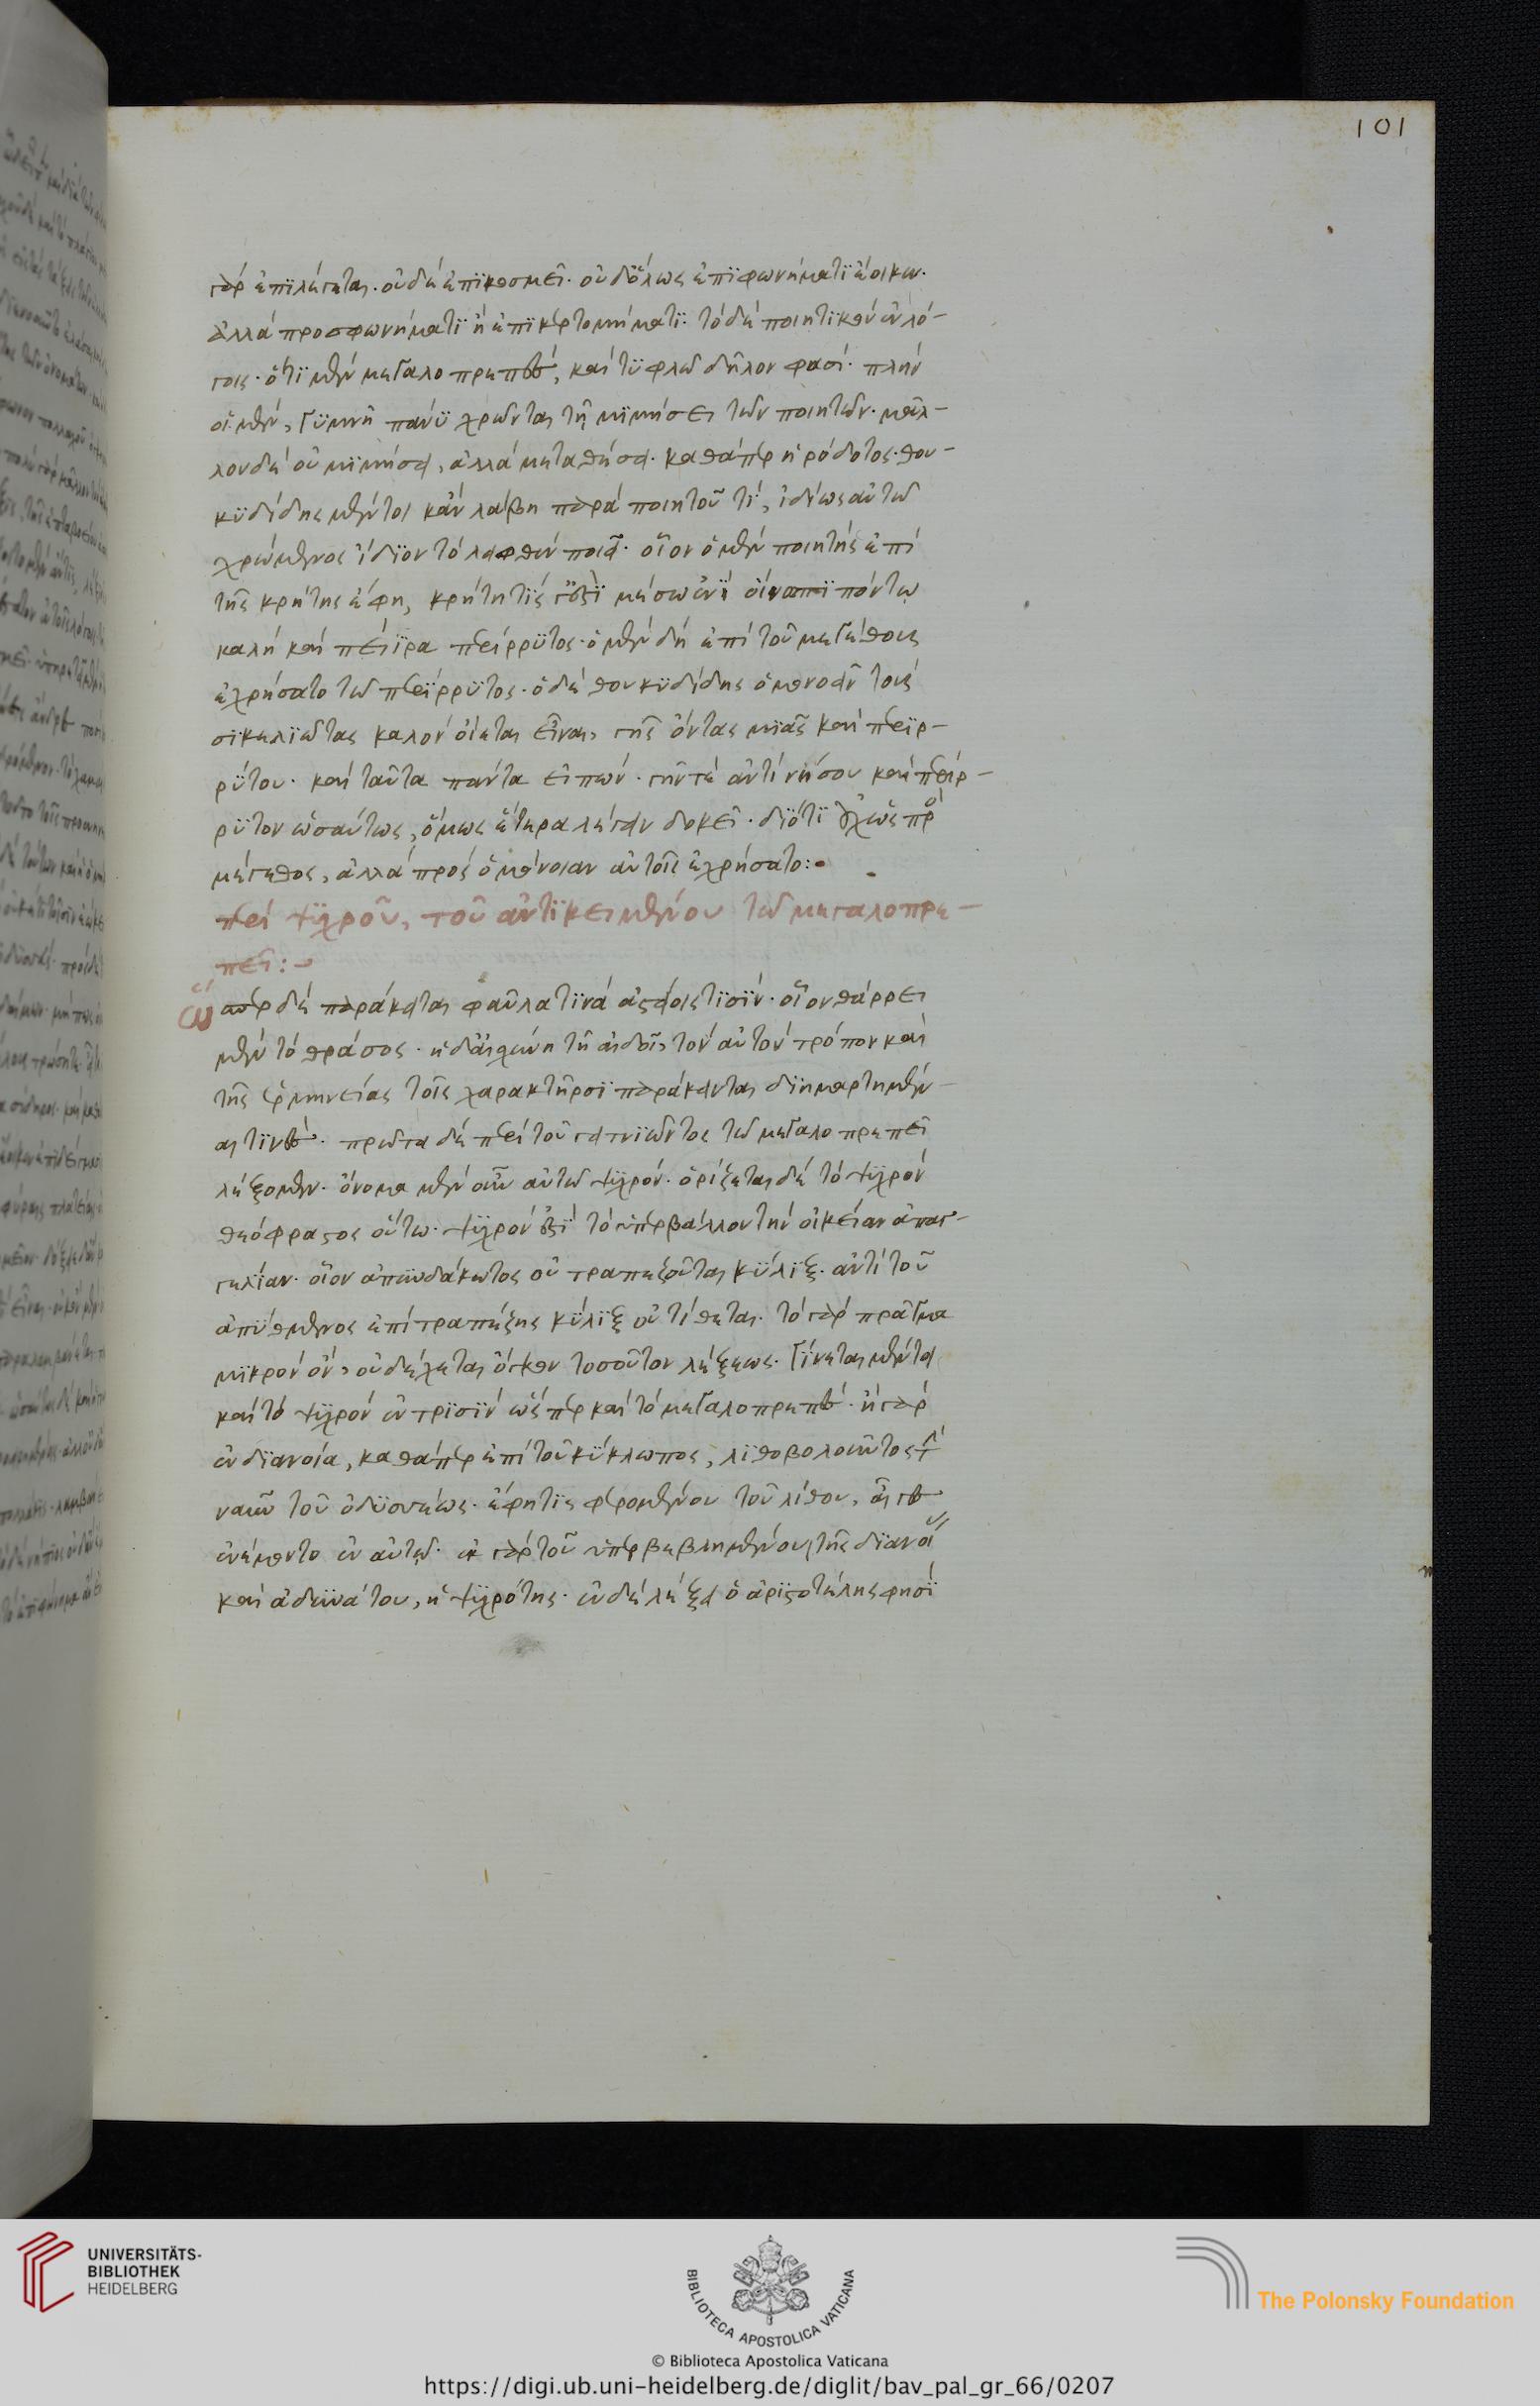 101
γὰρ ἐπιλέγεται. οὐδὲ ἐπικοσμεῖ. οὐδόλως ἐπιφωνήματι ἔοικεν.
ἀλλὰ προσφωνήματι ἢ ἐπικερτομήματι. τὸ δὲ ποιητικὸν ἐν λό-
γοις. ὅτι μὲν μεγαλοπρεπὲς, καὶ τυφλῶ δῆλον φασί. πλὴν
οἱ μὲν, γυμνῆ πάνυ χρῶνται τῆ μιμήσει τῶν ποιητῶν. μᾶλ-
λον δὲ οὐ μιμήσει, ἀλλὰ μεταθέσει. καθάπερ ἡρόδοτος. θου-
κυδίδης μέντοι κἂν λάβη παρὰ ποιητοῦ τὶ, ἰδίως αὐτῶ
χρώμενος ἴδιον τὸ ληφθὲν ποιεῖ. οἷον ὁ μὲν ποιητὴς ἐπὶ
τῆς κρήτης ἔφη, κρήτη τίς γ' ἐστὶ μέσω ἐνὶ οἴνοπι πόντω
καλὴ καὶ πίειρα περίρρυτος. ὁ μὲν δὴ ἐπὶ τοῦ μεγέθους
ἐχρήσατο τῶ περίρρυτος. ὁ δὲ θουκυδίδης ὁμονοεῖν τοὺς
σικελιώτας καλὸν οἴεται εἶναι, γῆς ὄντας μιᾶς καὶ περιρ-
ρύτου. καὶ ταῦτα πάντα εἰπὼν. γῆν τὲ ἀντὶ νήσου καὶ περίρ-
ρυτον ὡσαύτως, ὅμως ἕτερα λέγειν δοκεῖ. διότι οὐχ ὡς πρὸς
μέγεθος, ἀλλὰ πρὸς ὁμόνοιαν αὐτοῖς ἐχρήσατο:
περὶ ψυχροῦ, τοῦ ἀντικειμένου τῶ μεγαλοπρε-
πεῖ:
ὥσπερ δὲ παράκειται φαῦλα τινὰ ἀστείοις τισὶν. οἷον θάρρει
μὲν τὸ θράσος. ἡ δ' αἰσχύνη τῆ αἰδοῖ, τὸν αὐτὸν τρόπον καὶ
τῆς ἑρμηνείας τοῖς χαρακτῆρσι παράκεινται διημαρτημέν-
αι τινὲς. πρῶτα δὲ περὶ τοῦ γειτνιῶντος τῶ μεγαλοπρεπεῖ
λέξομεν. ὄνομα μὲν οὖν αὐτῶ ψυχρὸν. ὁρίζεται δὲ τὸ ψυχρὸν
θεόφραστος οὕτω. ψυχρὸν ἐστὶ τὸ ὑπερβάλλον τὴν οἰκείαν ἀπαγ-
γελίαν. οἷον ἀπυνδάκωτος οὐ τραπεζοῦται κύλιξ. ἀντὶ τοῦ
ἀπύθμενος ἐπὶ τραπέζης κύλιξ οὐ τίθεται. τὸ γὰρ πρᾶγμα
μικρὸν ὂν, οὐ δέχεται ὄγκον τοσοῦτον λέξεως. γίνεται μέντοι
καὶ τὸ ψυχρὸν ἐν τρισὶν ὥσπερ καὶ τὸ μεγαλοπρεπὲς. ἢ γὰρ
ἐν διανοία, καθάπερ ἐπὶ τοῦ κύκλωπος, λιθοβολοῦντος τὴν
ναῦν τοῦ ὀδυσσέως. ἔφη τις φερομένου τοῦ λίθου, αἶγες
ἐνέμοντο ἐν αὐτῶ. ἐκ γὰρ τοῦ ὑπερβεβλημένου τῆς διανοίας
καὶ ἀδυνάτου, ἡ ψυχρότης. ἐν δὲ λέξει ὁ ἀριστοτέλης φησὶ
UNIVERSITÄTS-
BIBLIOTHEK
HEIDELBERG
BIBLIOTECA APOSTOLICA VATICANA
The Polonsky Foundation
© Biblioteca Apostolica Vaticana
https://digi.ub.uni-heidelberg.de/diglit/bav_pal_gr_66/0207